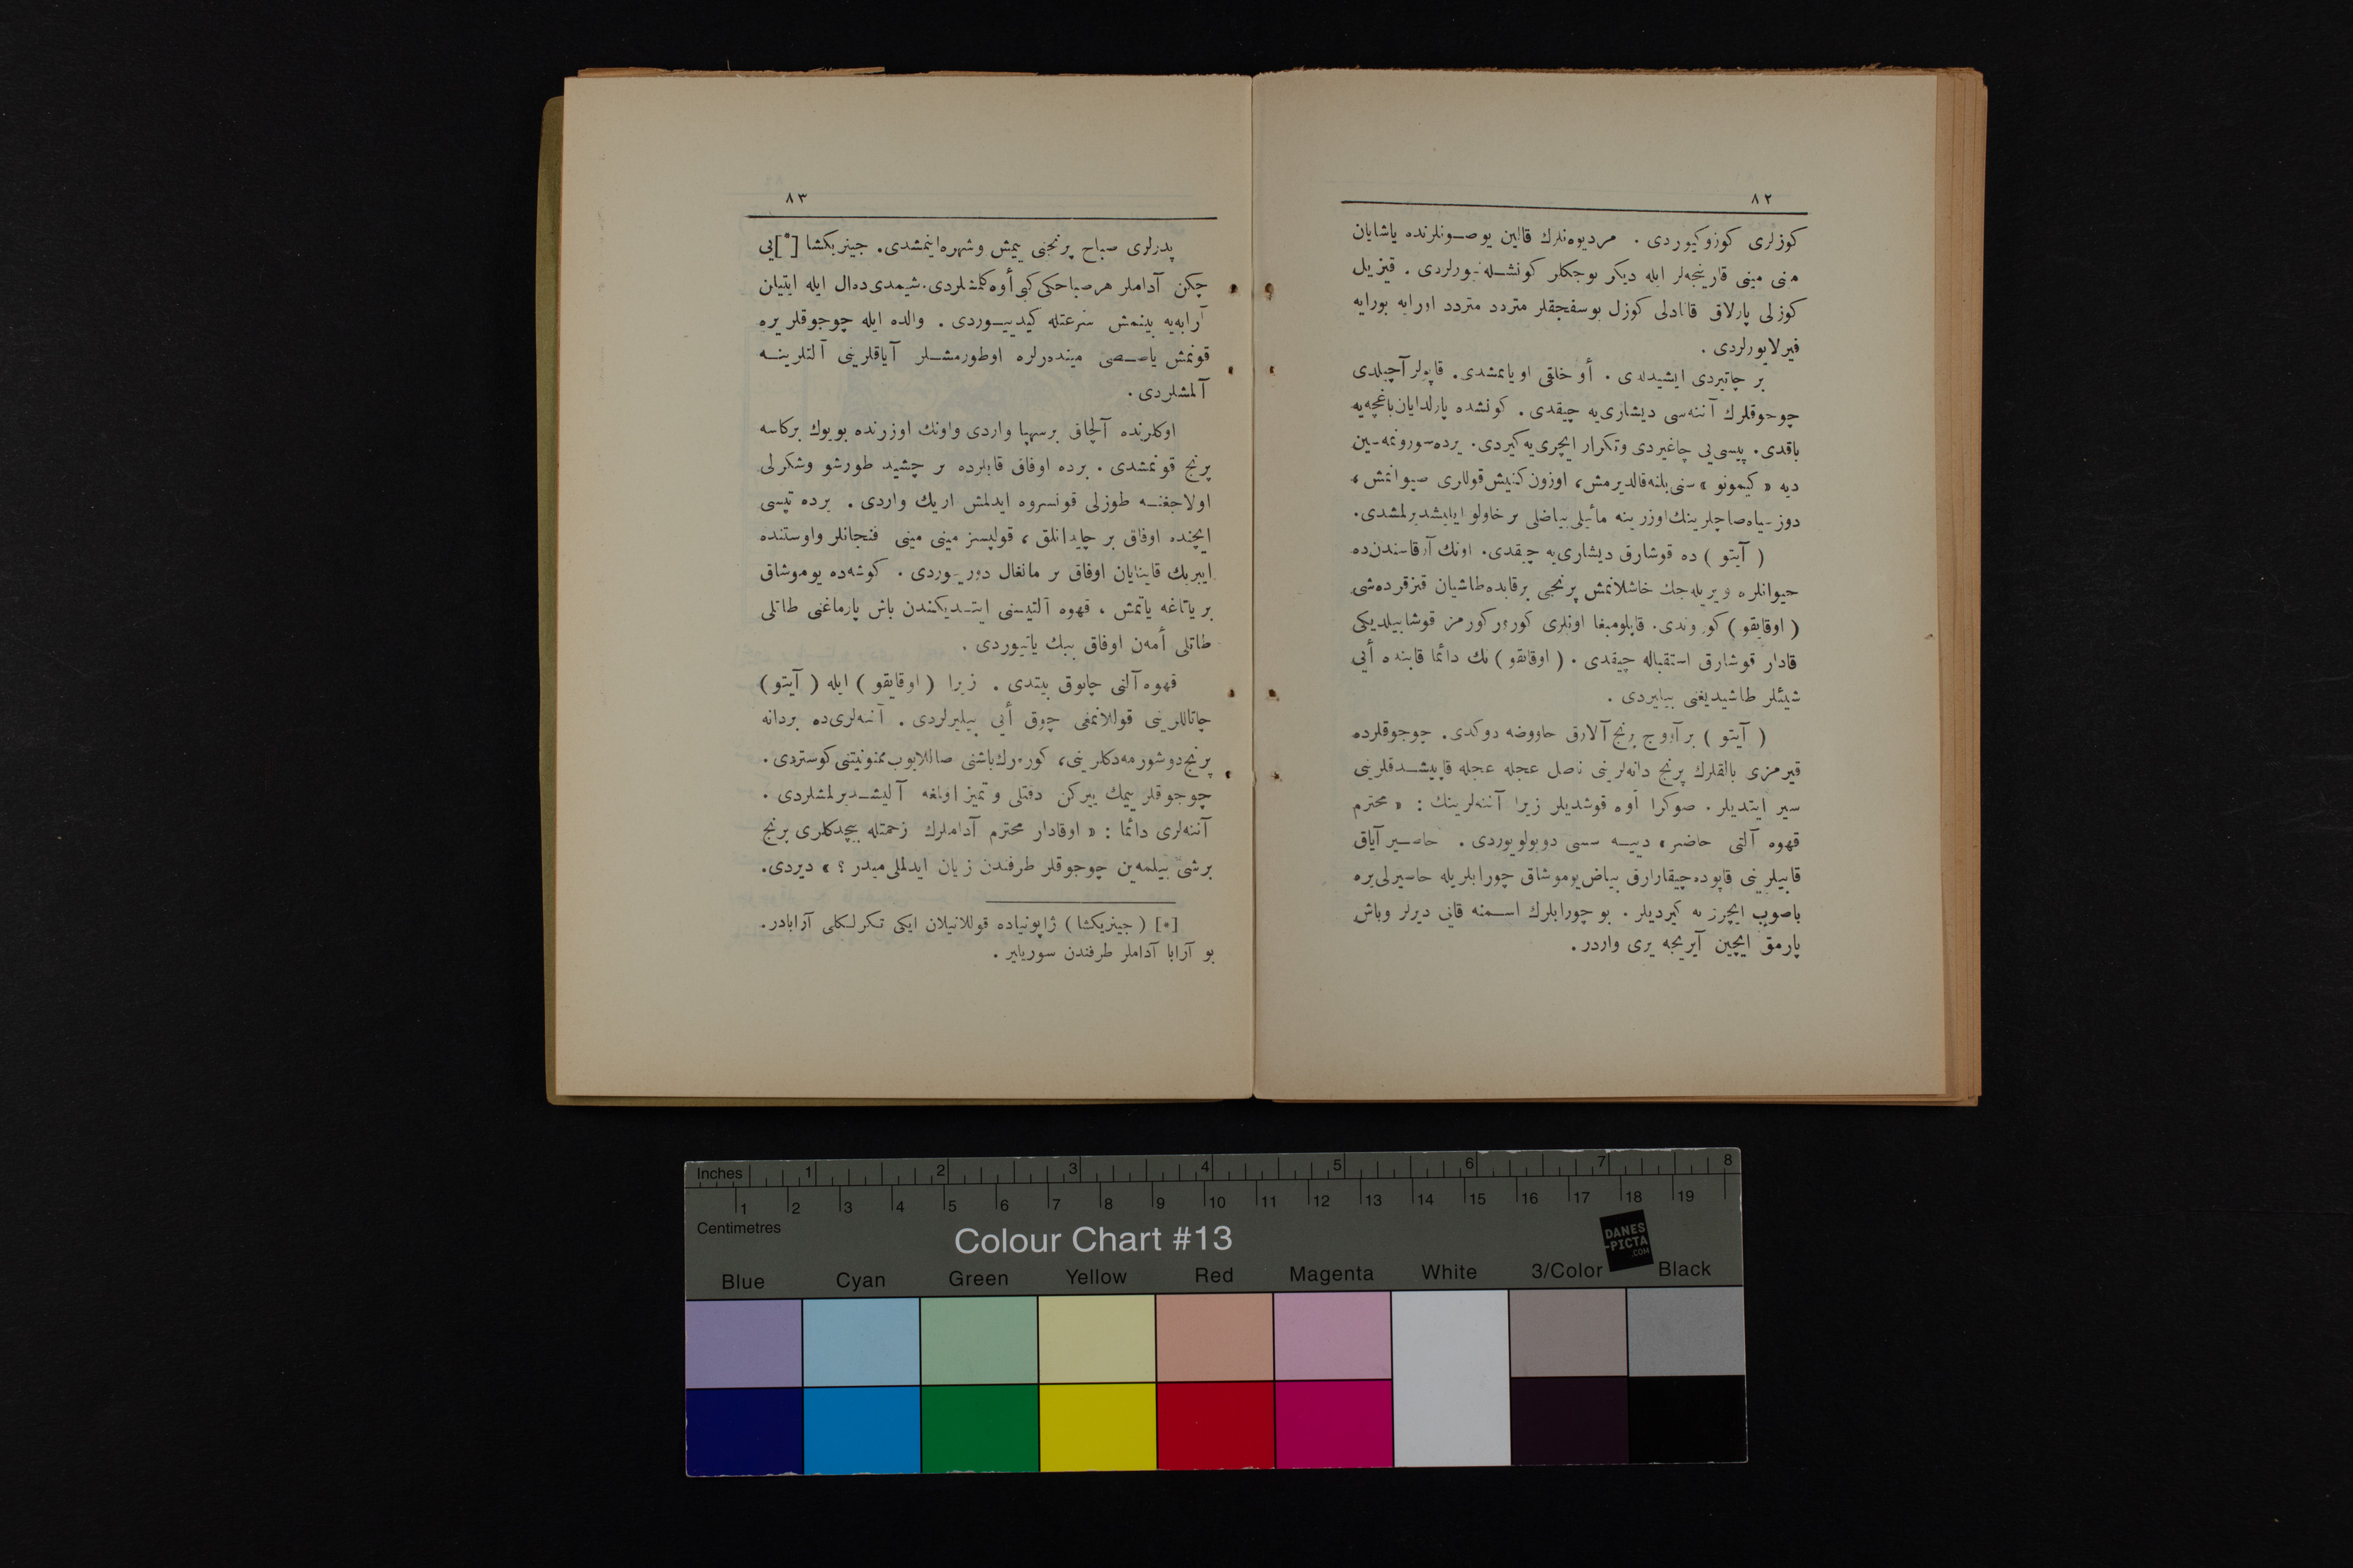 ٨٢
كوزلری كوزوكیوردی . مردیوه‌نلرك قالین یوصونلرنده یاشایان
منی مینی قارینجه‌لر ایله دیكر بوجكلر كونشله‌نیورلردی . قیزیل
كوزلی پارلاق قانادلی كوزل بوسفجقلر متردد متردد اورایه بورایه
فیرلایورلردی .
بر چاتیردی ایشیدلدی . أو خلقی اویانمشدی . قاپولر آچیلدی
چوجوقلرك آننه‌سی دیشاری‌یه چیقدی . كونشده پارلدایان باغچه‌یه
باقدی . پیسی‌یی چاغیردی وتكرار ایچری‌یه كیردی . یرده سورونمه‌سین
دیه « كیمونو » سنی بلنه قالدیرمش ، اوزون كنیش قوللری صیوانمش ،
دوز سیاه صاچلرینك اوزرینه مائیلی بیاضلی بر خاولو ایلیشدیرلمشدی .
( آیتو ) ده قوشارق دیشاری‌یه چیقدی . اونك آرقاسندن‌ده
حیوانلره ویریله‌جك خاشلانمش پرنجی برقابده طاشیان قیزقرده‌شی
( اوقایقو ) كوروندی . قاپلومبغا اونلری كورور كورمز قوشابیلدیكی
قادار قوشارق استقباله چیقدی . ( اوقایقو ) نك دائما قابنده أیی
شیئلر طاشیدیغنی بیلیردی .
( آیتو ) بر آووج پرنج آلارق حاووضه دوكدی . چوجوقلرده
قیرمزی بالقلرك پرنج دانه‌لرینی ناصل عجله عجله قاپیشدقلرینی
سیر ایتدیلر . صوكرا أوه قوشدیلر زیرا آننه‌لرینك : « محترم
قهوه آلتی حاضر » دییه سسی دویولویوردی . حاصیر آیاق
قابیلرینی قاپوده چیقارارق بیاض یوموشاق چورابلریله حاسیرلی یره
باصوب ایچرزیه كیردیلر . بو چورابلرك اسمنه قاپی دیرلر وباش
پارمق ایچین آیریجه یری واردر .
٨٣
پدرلری صباح پرنجنی ییمش وشهره اینمشدی . جینریكشا [*] یی
چكن آداملر هر صباحكی كبی أوه كلمشلردی . شیمدی ده ال ایله ایتیلن
آرابه‌یه بینمش سرعتله كیدییوردی . والده ایله چوجوقلر یره
قونمش یاصصی مینده‌رلره اوطورمشلر آیاقلرینی آلتلرینه
آلمشلردی .
اوكلرنده آلچاق برسهپا واردی واونك اوزرنده بویوك بركاسه
پرنج قونمشدی . برده اوفاق قابلرده بر چشید طورشو وشكرلی
اولاجغنه طوزلی قونسروه ایدلمش اریك واردی . برده تپسی
ایچنده اوفاق بر چایدانلق ، قولپسز مینی مینی فنجانلر واوستنده
ایبریك قاینایان اوفاق بر مانغال دورییوردی . كوشه‌ده یوموشاق
بر یاتاغه یاتمش ، قهوه آلتیسنی ایتدیكندن باش پارماغنی طاتلی
طاتلی أمه‌ن اوفاق ببك یاتیوردی .
قهوه آلتی چابوق بیتدی . زیرا ( اوقایقو ) ایله ( آیتو )
چاتاللرینی قوللانمغی چوق أیی بیلیرلردی . آننه‌لری‌ده بردانه
پرنج دوشورمه‌دكلرینی ، كوره‌رك باشنی صاللایوب ممنونیتنی كوستردی .
چوجوقلر ییمك ییركن دقتلی وتمیز اولمغه آلیشدیرلمشلردی .
آننه‌لری دائما : « اوقادار محترم آداملرك زحمتله بیچدكلری پرنج
برشی بیلمه‌ین چوجوقلر طرفندن زیان ایدلملی‌میدر ؟ » دیردی .
[*] ( جینریكشا ) ژاپونیاده قوللانیلان ایكی تكرلكلی آرابادر .
بو آرابا آداملر طرفندن سوریلیر .
Inches 1 2 3 4 5 6 7 8
1 2 3 4 5 6 7 8 9 10 11 12 13 14 15 16 17 18 19
Centimetres
Colour Chart #13
DANES
-PICTA
.COM
Blue Cyan Green Yellow Red Magenta White 3/Color Black